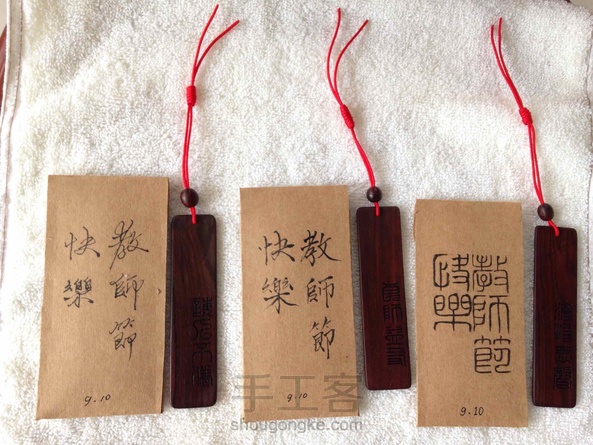 教師節
快樂
9.10
教師節
快樂
9.10
教師節
快樂
9.10
手工客
shougongke.com